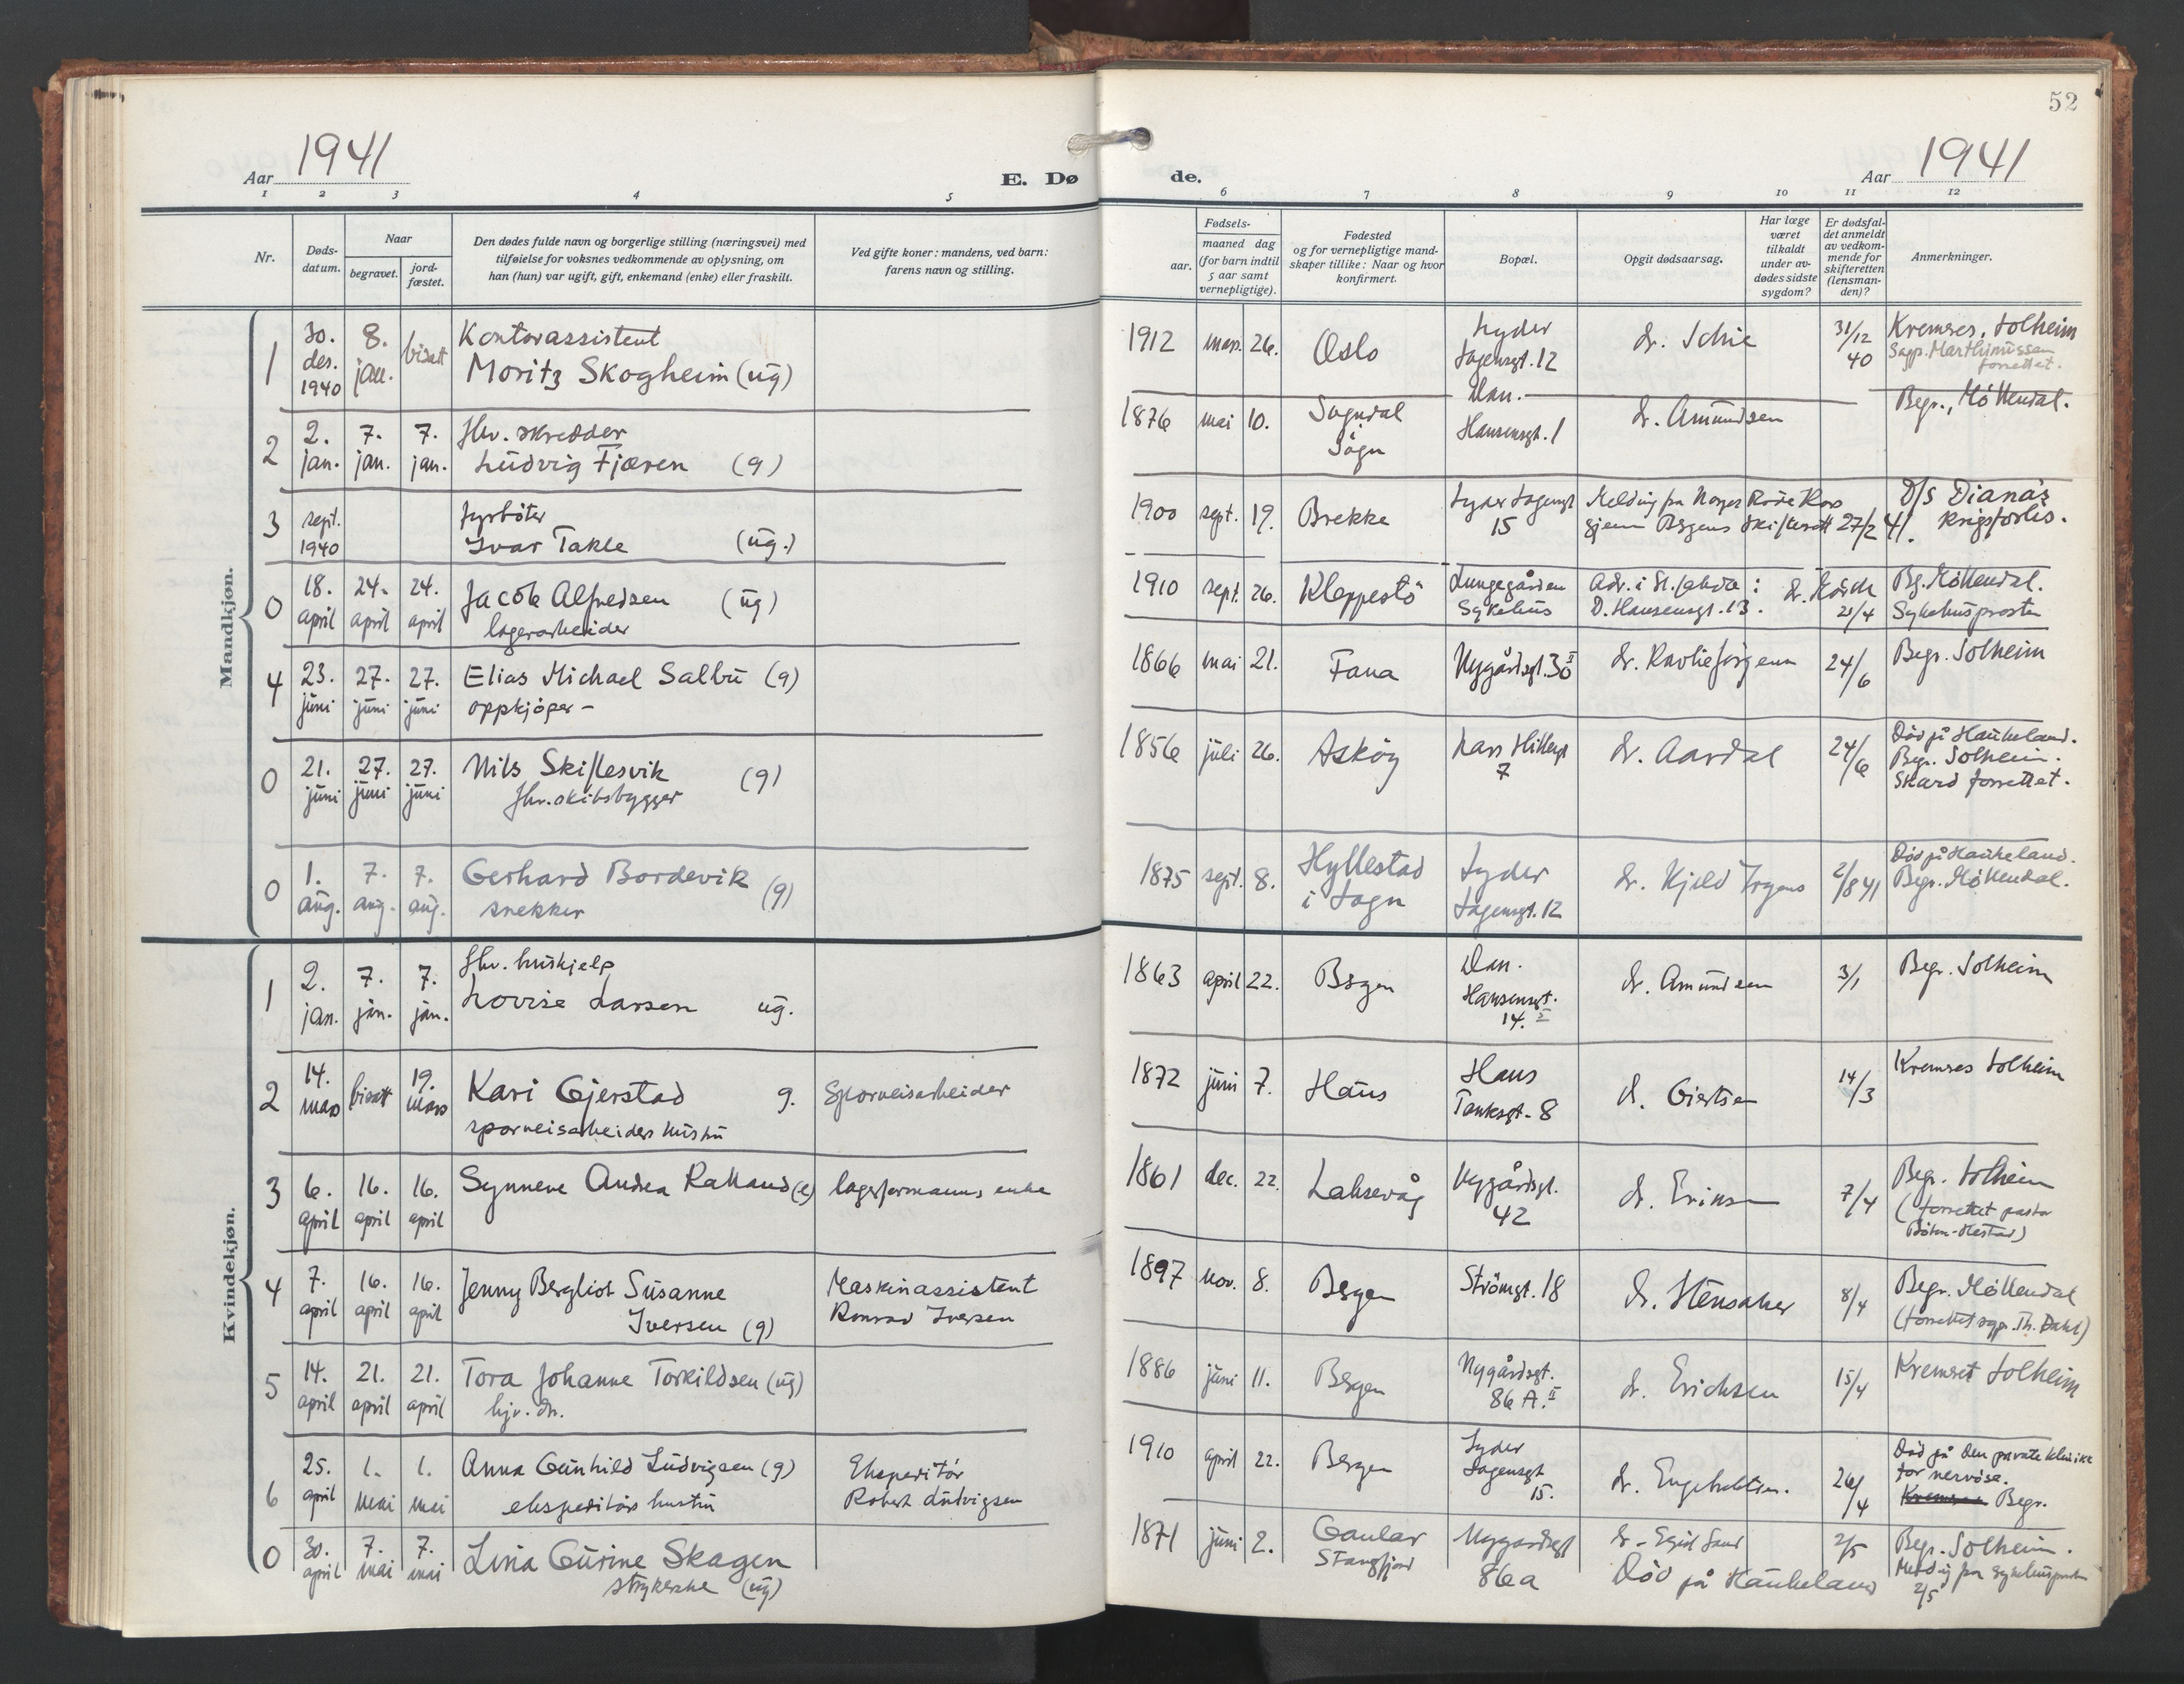 52
Aar 1941
E. Døde.
Aar 1941
1 2 3 4 5 6 7 8 9 10 11 12
Nr.
Døds-
datum.
Naar
begravet.
jord-
fæstet.
Den dødes fulde navn og borgerlige stilling (næringsvei) med
tilføielse for voksnes vedkommende av oplysning, om
han (hun) var ugift, gift, enkemand (enke) eller fraskilt.
Ved gifte koner: mandens, ved barn:
farens navn og stilling.
Fødsels-
aar. maaned dag
(for barn indtil
5 aar samt
vernepligtige).
Fødested
og for vernepligtige mand-
skaper tillike: Naar og hvor
konfirmert.
Bopæl.
Opgit dødsaarsag.
Har læge
været
tilkaldt
under av-
dødes sidste
sygdom?
Er dødsfal-
det anmeldt
av vedkom-
mende for
skifteretten
(lensman-
den)?
Anmerkninger.
Mandkjøn.
1 30. des. 1940 8. jan. bisatt Kontorassistent
Moritz Skogheim (ug)
1912 mars 26. Oslo Lyder Sagensgt. 12 dr. Schie 31/12 40 Kremeres, Solheim
Sogp. Marthinussen forrettet.
2 2. jan. 7. jan. 7. jan. fhv. skredder
Ludvig Fjæren (g)
1876 mai 10. Sogndal i Sogn Dan. Hansensgt. 1 dr. Amundsen Begr., Møllendal.
3 sept. 1940 fyrbøter
Ivar Takle (ug.)
1900 sept. 19. Brekke Lyder Sagensgt 15 Melding fra Norges Røde Kors
gjenn Bergens Skifterett 27/2 41. D/S Diana's
krigsforlis.
0 18. april 24. april 24. april Jacob Alfredsen (ug)
lagerarbeider
1910 sept. 26. Kleppestö Lungegården Sykehus
D. Hansensgt. 13. 21/4 Bg. Møllendal.
Sykehusprosten
4 23. juni 27. juni 27. juni Elias Michael Salbu (g)
oppkjöper -
1866 mai 21. Fana Nygårdsgt. 30 II 24/6 Begr. Solheim
0 21. juni 27. juni 27. juni Nils Skiftesvik (g)
fhv. skibsbygger
1856 juli 26. Asköy Lars Hillesgt 7 dr. Aardal 24/6 Död på Haukeland.
Begr. Solheim.
Skard forrettet.
0 1. aug. 7. aug. 7. aug. Gerhard Bordevik (g)
snekker
1875 sept. 8. Hyllestad i Sogn Lyder Sagensgt. 12 dr. Kjeld Irgens 2/8 41 Död på Haukeland.
Begr. Møllendal.
Kvindekjøn.
1 2. jan. 7. jan. 7. jan. fhv. huskjelp
Lovise Larsen ug.
1863 april 22. Bergen Dan. Hansensgt. 14. I dr. Amundsen 3/1 Begr. Solheim
2 14. mars bisatt 19. mars Kari Gjerstad g.
sporveisarbeiders hustru
Sporveisarbeider
1872 juni 7. Haus Hans Tanksgt. 8 dr. Giertsen 14/3 Kremeres Solheim
3 6. april 16. april 16. april Synneve Andrea Ratland (e) lagerformanns enke
1861 dec. 22. Laksevåg Nygårdsgt. 42 dr. Eriksen 7/4 Begr. Solheim
(forrettet pastor
4 7. april 16. april 16. april Jenny Bergliot Susanne
Iversen (g)
Maskinassistent
Konrad Iversen
1897 nov. 8. Bergen Strömgt. 18 dr. Stensaker 8/4 Begr. Møllendal
(forrettet sogp. Th. Dahl)
5 14. april 21. april 21. april Tora Johanne Torkildsen (ug)
hjv. dr.
1886 juni 11. Bergen Nygårdsgt. 86 A. II dr. Erichsen 15/4 Kremeret Solheim
6 25. april 1. mai 1. mai Anna Gunhild Ludvigsen (g)
ekspeditörs hustru
Ekspeditör
Robert Ludvigsen
1910 april 22. Bergen Lyder Sagensgt 15. 26/4 Död på den private klinikk
for nervöse.
Begr.
0 30. april 7. mai 7. mai Lina Gurine Skagen
strykerske (ug)
1871 juni 2. Gaular
Stangfjord Nygårdsgt 86a dr. Egil Sand
Död på Haukeland 2/5 Begr. Solheim.
Melding fra sykehusprosten
2/5